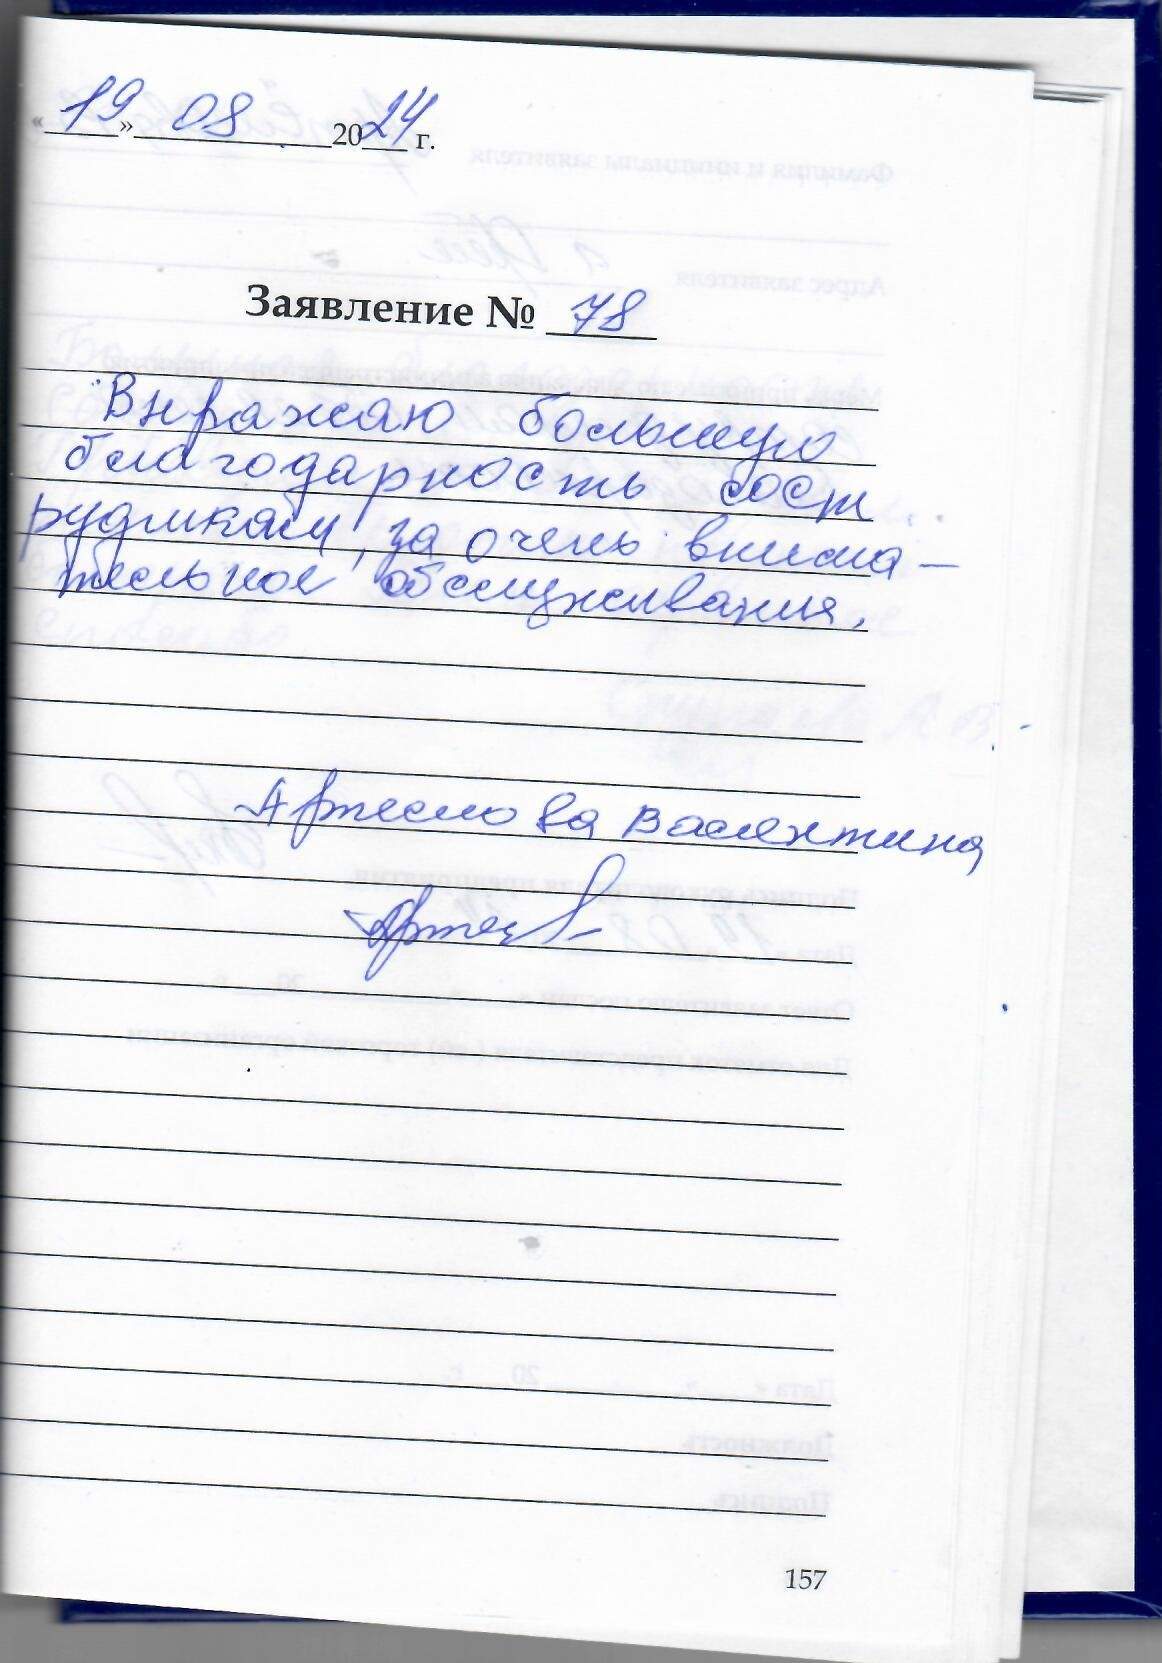 «19» 08 2024 г.
Заявление № 78
Выражаю большую
благодарность сост
рудникам, за очень внима–
тельное обслуживания.
Артемова Валентина
157